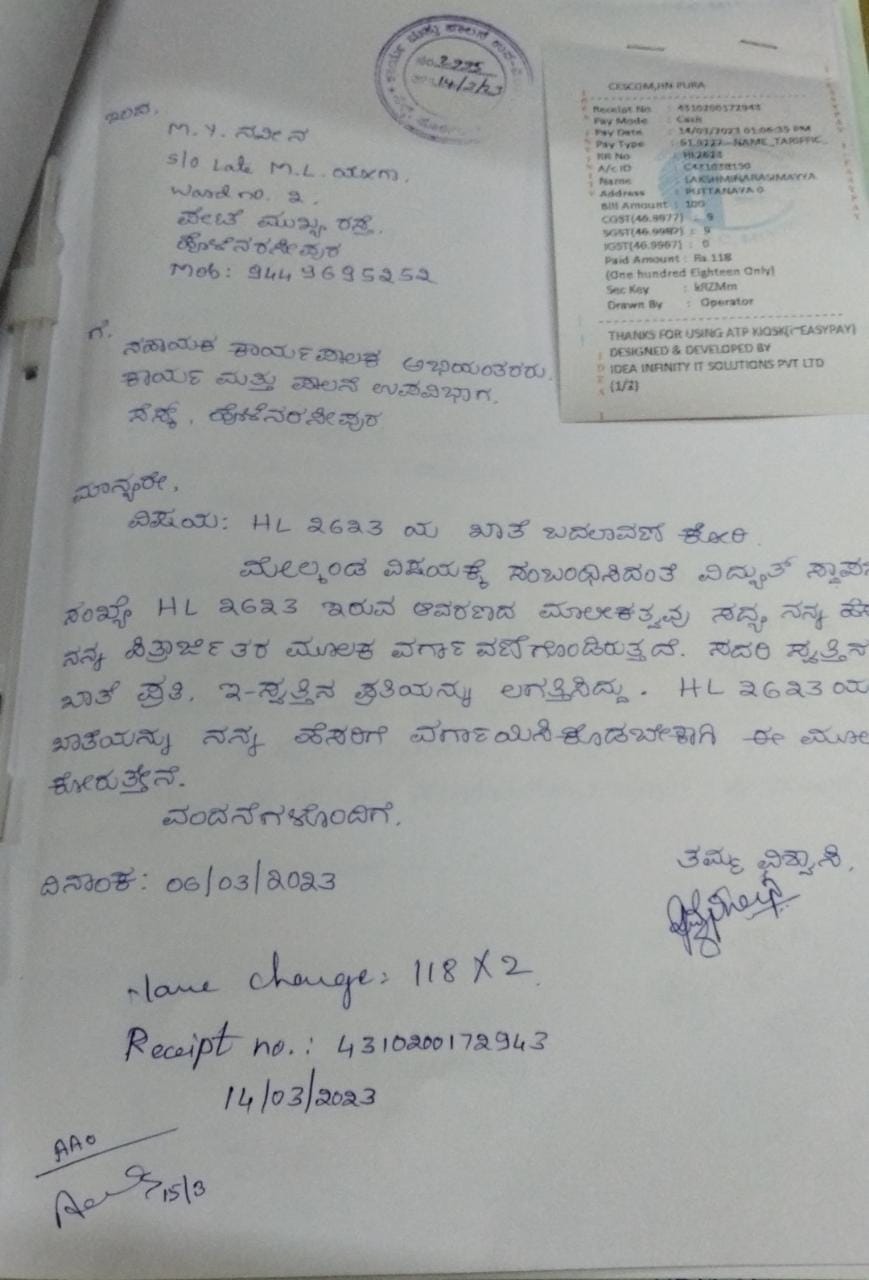 ಕಾರ್ಯ ಮತ್ತು ಪಾಲನೆ ಉಪ-
2295
14/3/23
CESCOM,HN PURA
Receipt No : 4310200172943
Pay Mode : Cash
Pay Date : 14/03/2023 01:06:35 PM
Pay Type : 61.9277--NAME_TARIFFIC_
RR No : HL2623
A/c ID
Name : LAKSHMINARASIMAYYA
Address : PUTTANAYA 0
Bill Amount : 100
CGST(46.9977) : 9
SGST(46.9987) : 9
IGST(46.9967) : 0
Paid Amount : Rs.118
(One hundred Eighteen Only)
Sec Key : kRZMm
Drawn By : Operator
THANKS FOR USING ATP KIOSK(i~EASYPAY)
DESIGNED & DEVELOPED BY
IDEA INFINITY IT SOLUTIONS PVT LTD
(1/2)
ಇಂದ,
M.Y. ನವೀನ
S/o Late M.L. ಯೋಗಾ.
Ward no. ೩.
ಪೇಟೆ ಮುಖ್ಯ ರಸ್ತೆ.
ಹೊಳೆನರಸೀಪುರ
Mob: 9449695252
ಗೆ.
ಸಹಾಯಕ ಕಾರ್ಯಪಾಲಕ ಅಭಿಯಂತರರು.
ಕಾರ್ಯ ಮತ್ತು ಪಾಲನೆ ಉಪವಿಭಾಗ.
ಸೆಸ್ಕ್, ಹೊಳೆನರಸೀಪುರ
ಮಾನ್ಯರೇ,
ವಿಷಯ: HL 2623 ಯ ಖಾತೆ ಬದಲಾವಣೆ ಕೋರಿ.
ಮೇಲ್ಕಂಡ ವಿಷಯಕ್ಕೆ ಸಂಬಂಧಿಸಿದಂತೆ ವಿದ್ಯುತ್ ಸ್ಥಾಪನ
ಸಂಖ್ಯೆ HL 2623 ಇರುವ ಆವರಣದ ಮಾಲೀಕತ್ವವು ಸದ್ಯ ನನ್ನ ಹೆಸ
ನನ್ನ ಪಿತ್ರಾರ್ಜಿತರ ಮೂಲಕ ವರ್ಗಾವಣೆಗೊಂಡಿರುತ್ತದೆ. ಸದರಿ ಸ್ವತ್ತಿನ
ಖಾತೆ ಪ್ರತಿ, ಇ-ಸ್ವತ್ತಿನ ಪ್ರತಿಯನ್ನು ಲಗತ್ತಿಸಿದ್ದು. HL 2623 ಯ
ಖಾತೆಯನ್ನು ನನ್ನ ಹೆಸರಿಗೆ ವರ್ಗಾಯಿಸಿಕೊಡಬೇಕಾಗಿ ಈ ಮೂಲ
ಕೋರುತ್ತೇನೆ.
ವಂದನೆಗಳೊಂದಿಗೆ.
ತಮ್ಮ ವಿಶ್ವಾಸಿ,
ದಿನಾಂಕ: 06/03/2023
Name change: 118 X 2.
Receipt no.: 4310200172943
14/03/2023
AAO
15/3